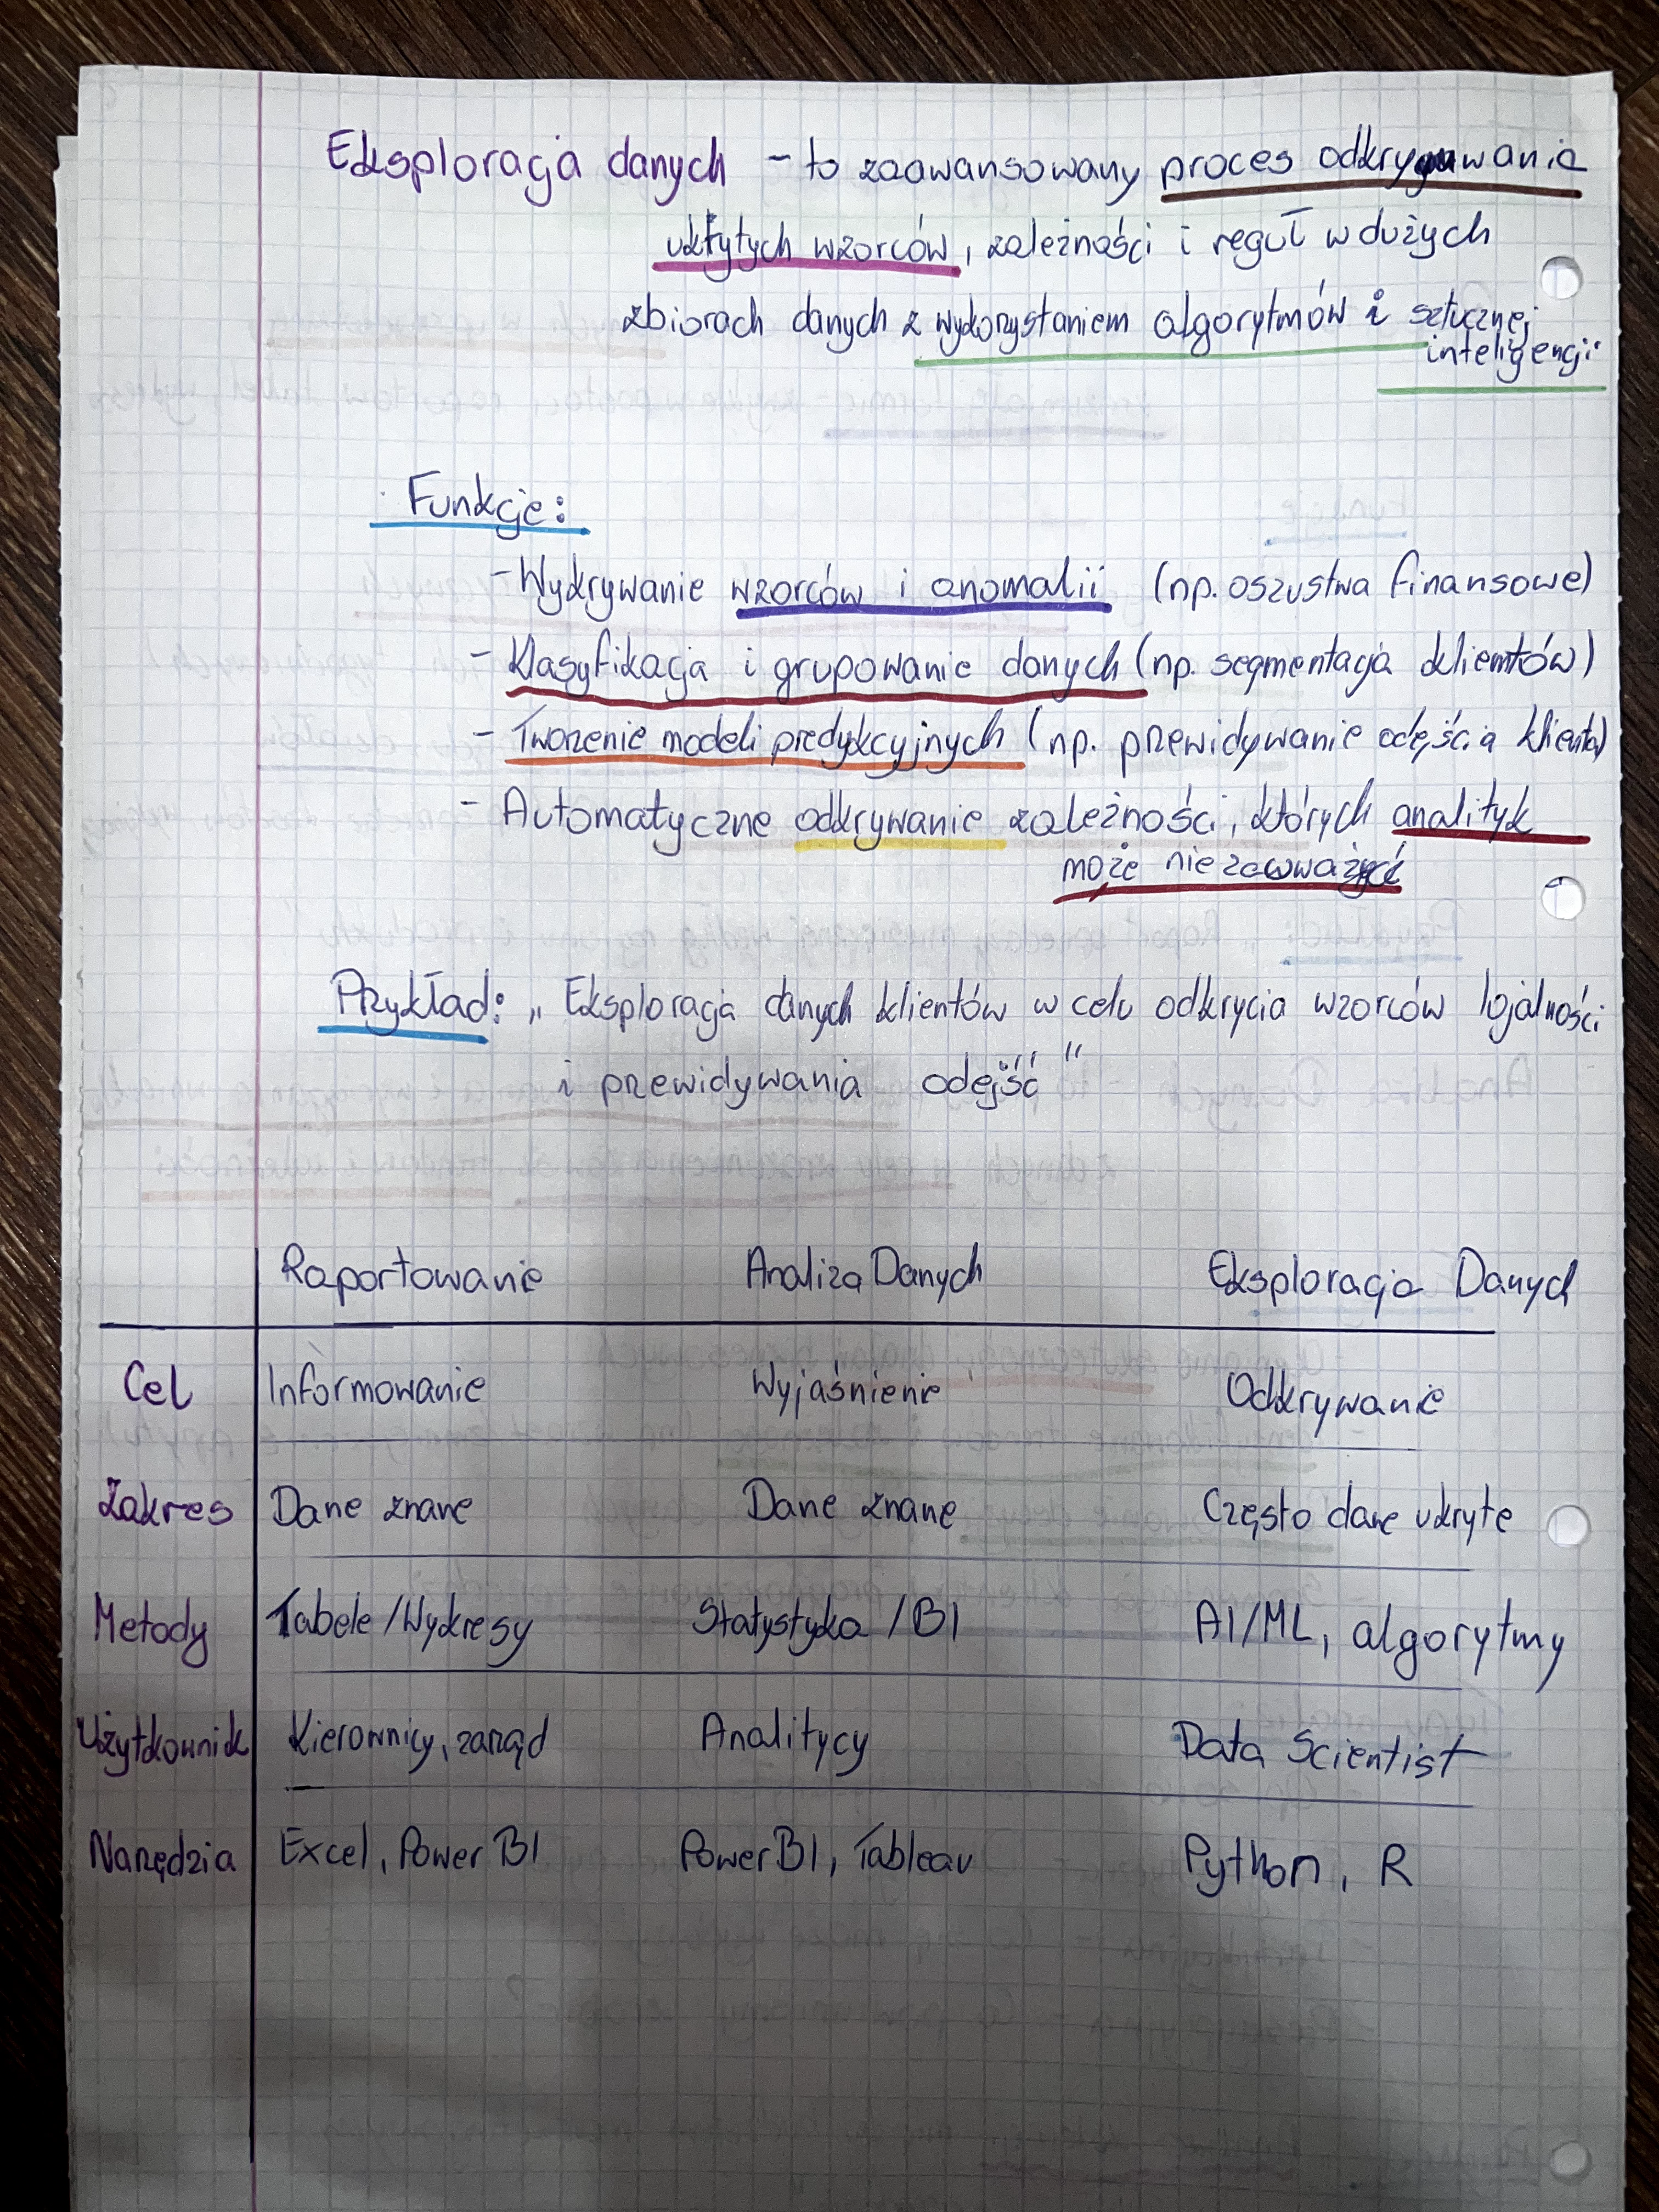 Eksploracja danych - to zaawansowany proces odkrywania
ukrytych wzorców, zależności i reguł w dużych
zbiorach danych z wykorzystaniem algorytmów i sztucznej
inteligencji
Funkcje:
- Wykrywanie wzorców i anomalii (np. oszustwa finansowe)
- Klasyfikacja i grupowanie danych (np. segmentacja klientów)
- Tworzenie modeli predykcyjnych (np. przewidywanie odejścia klienta)
- Automatyczne odkrywanie zależności, których analityk
może nie zauważyć
Przykład: „Eksploracja danych klientów w celu odkrycia wzorców lojalności
i przewidywania odejść”
Raportowanie Analiza Danych Eksploracja Danych
Cel Informowanie Wyjaśnienie Odkrywanie
Zakres Dane znane Dane znane Często dane ukryte
Metody Tabele/Wykresy Statystyka/BI AI/ML, algorytmy
Użytkownik Kierownicy, zarząd Analitycy Data Scientist
Narzędzia Excel, Power BI Power BI, Tableau Python, R